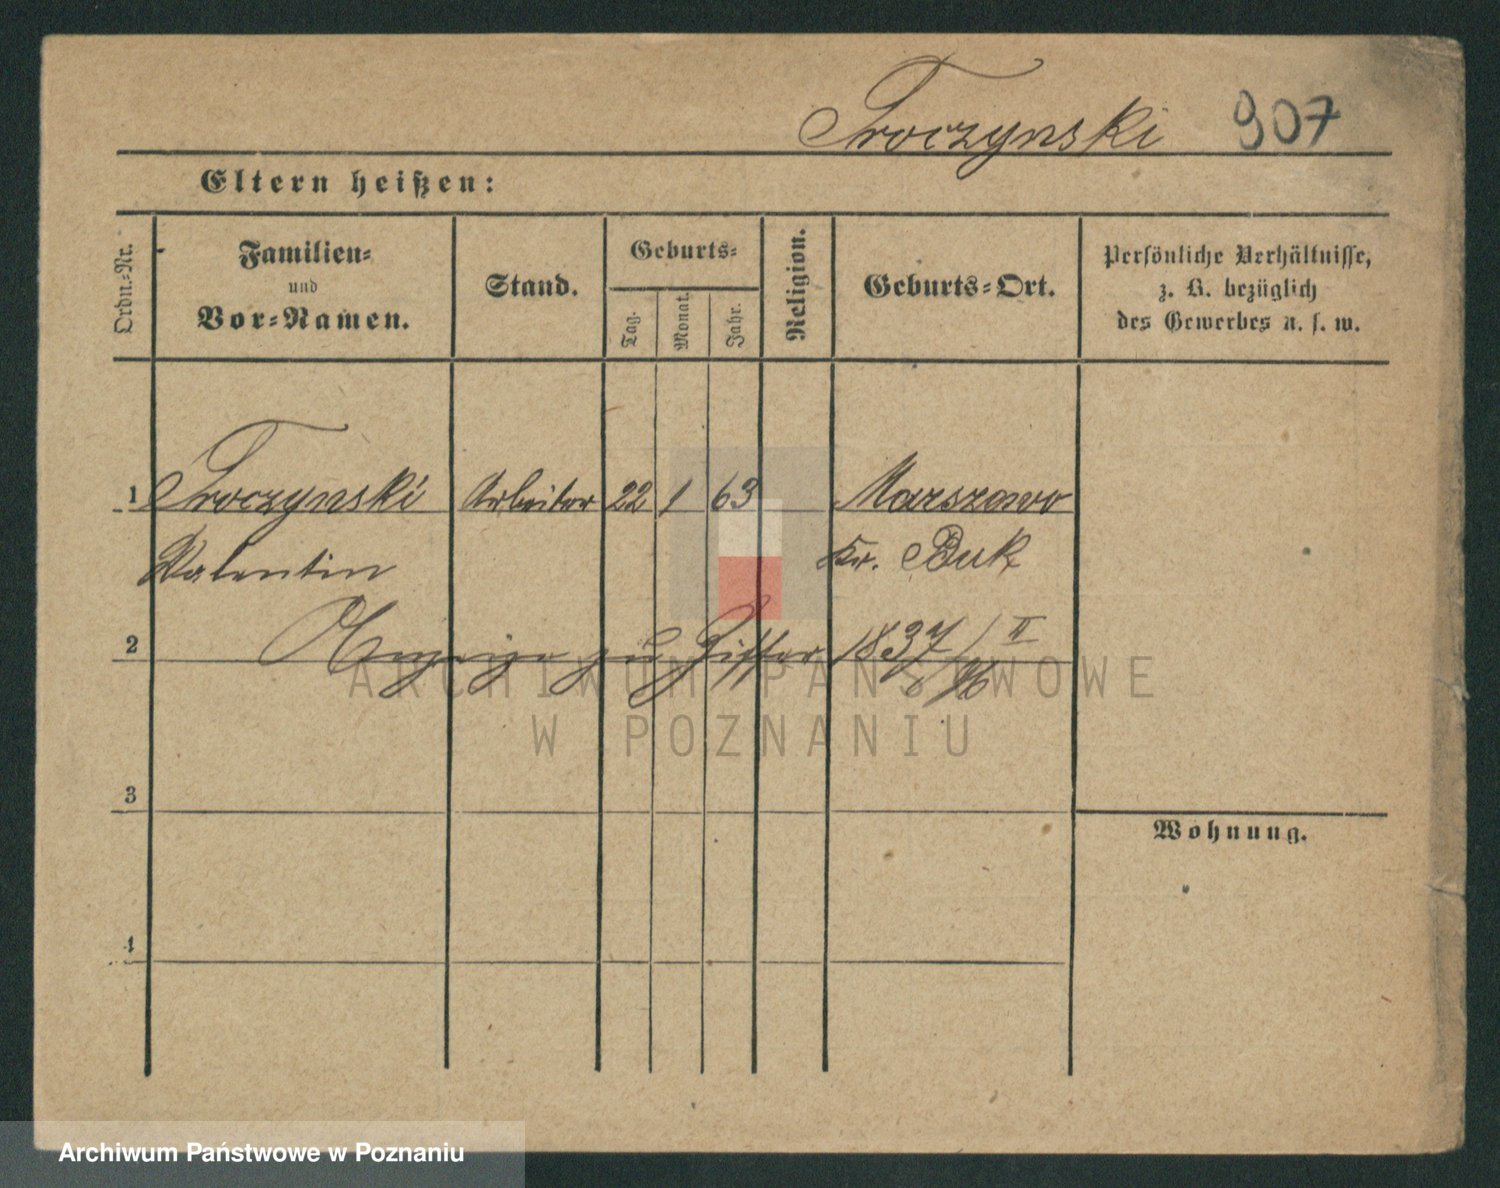 Troczynski 907
Eltern heißen:
Ordn.-Nr.
Familien-
und
Vor-Namen.
Stand.
Geburts-
Tag.
Monat.
Jahr.
Religion.
Geburts-Ort.
Persönliche Verhältnisse,
z. B. bezüglich
des Gewerbes u. s. w.
1 Troczynski Arbeiter 22 1 63 Marszewo
Valentin Kr. Buk
2 Anzeige zu Ziffer 1837/II
96
ARCHIWUM PAŃSTWOWE
W POZNANIU
3
Wohnung.
4
Archiwum Państwowe w Poznaniu